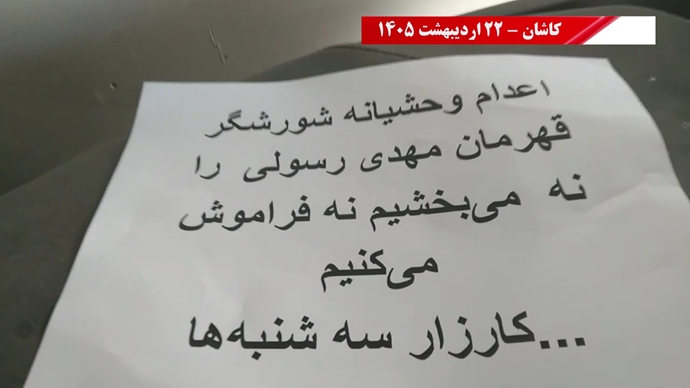 کاشان - ۲۲ اردیبهشت ۱۴۰۵
اعدام وحشیانه شورشگر
قهرمان مهدی رسولی را
نه می‌بخشیم نه فراموش
می‌کنیم
...کارزار سه شنبه‌ها